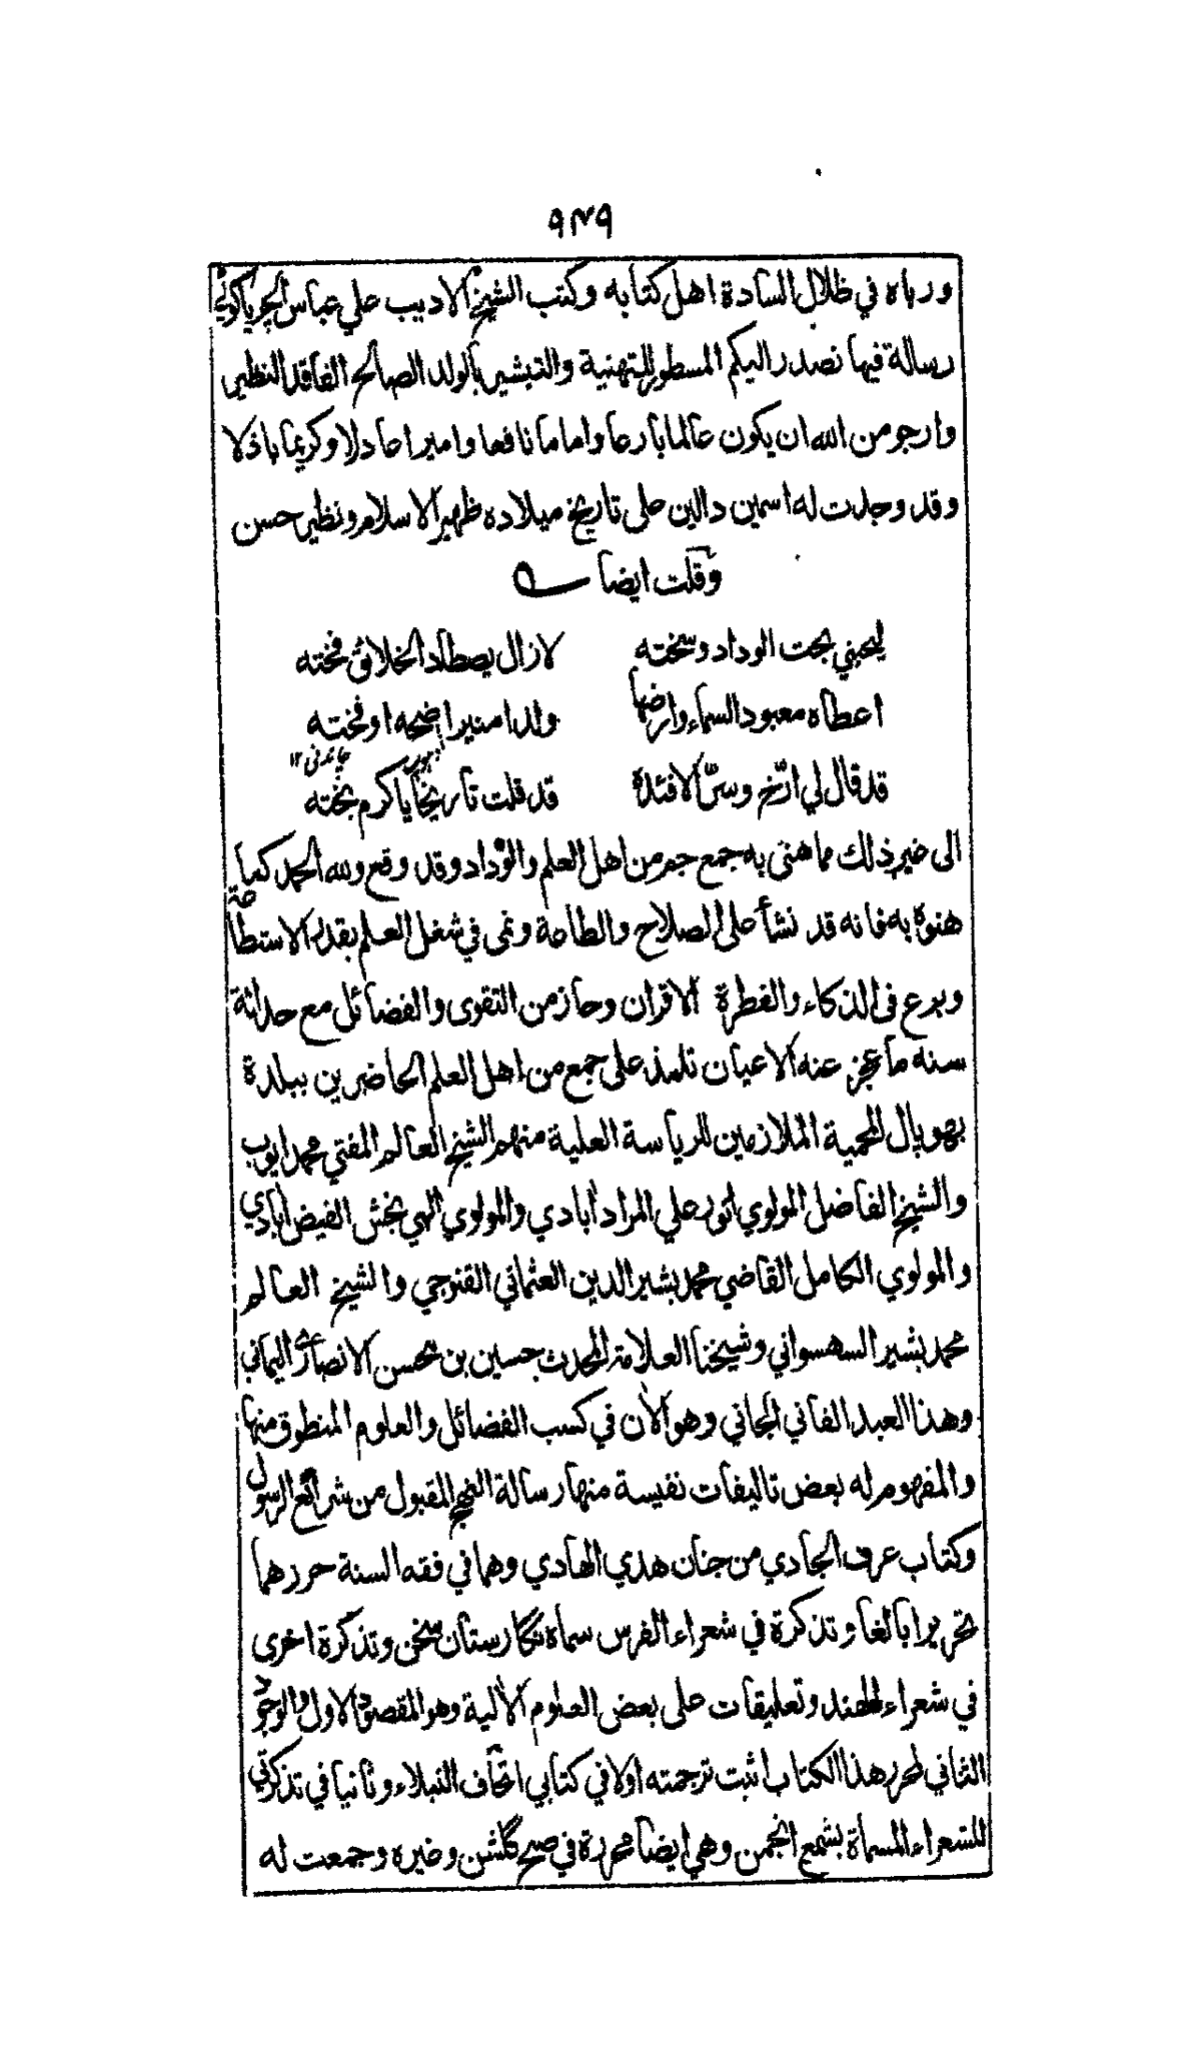 ٩٣٩
ورباه في ظلال السادة اهل كتابه وكتب الشيخ الاديب علي عباس الجرياكوتي
رسالة فيها نصدر اليكم المسطور للتهنية والتبشير بالولد الصالح الفاقد النظير
وارجو من الله ان يكون عالما بارعا واماما نافعا واميرا عادلا وكريما باذلا
وقد وجدت له اسمين دالين على تاريخ ميلاده ظهير الاسلام ونظير حسن
وقلت ايضا
بحت الوداد وسخته
لازال يصطاد الخلائق فخته
اعطاه معبود السماء وارضها
ولدا منيرا ضحه او فخته
چاندنی ١٢
قد قال لي ارّخ وسرّ الافئدة
قد قلت تاريخا يا كرم بخته
الى خير ذلك مما هنى به جمع جم من اهل العلم والوداد وقد وقع ولله الحمد كما
هنوه به فانه قد نشأ على الصلاح والطاعة ونمى في شغل العلم بقدر الاستطاعة
وبرع فى الذكاء والفطرة الاقران وحاز من التقوى والفضائل مع حداثة
سنه ما عجز عنه الاعيان تلمذ على جمع من اهل العلم الحاضرين ببلدة
بهوپال المحمية الملازمين للرياسة العلية منهم الشيخ العالم المفتي محمد ايوب
والشيخ الفاضل المولوي انور علي المرادآبادي والمولوي الهي بخش الفيض ابادي
والمولوي الكامل القاضي محمد بشير الدين العثماني القنوجي والشيخ العالم
محمد بشير السهسواني وشيخنا العلامة المحدث حسين بن محسن الانصاري اليماني
وهذا العبد الفاني الجاني وهو الآن في كسب الفضائل والعلوم المنطوق منها
والمفهوم له بعض تاليفات نفيسة منها رسالة النهج المقبول من شرائع الرسول
وكتاب عرف الجادي من جنان هدي الهادي وهما في فقه السنة حررهما
تحريرا بالغا وتذكرة في شعراء الفرس سماه نگارستان سخن وتذكرة اخرى
في شعراء الهند وتعليقات على بعض العلوم الآلية وهو المقصود الاول والوجود
الثاني لمحرر هذا الكتاب اثبت ترجمته اولا في كتابي اتحاف النبلاء وثانيا في تذكرتي
للشعراء المسماة بشمع انجمن وهي ايضا محررة في صبح گلشن وغيره وجمعت له